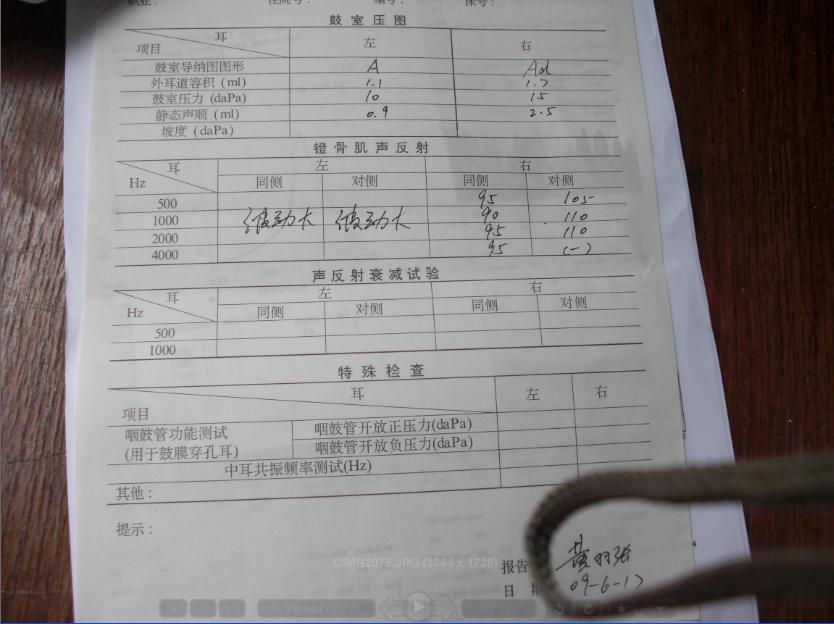 职业： 住院号： 编号： 床号：
鼓室压图
耳 左 右
项目
鼓室导纳图图形 A Ad
外耳道容积 (ml) 1.1 1.7
鼓室压力 (daPa) 10 15
静态声顺 (ml) 0.9 2.5
坡度 (daPa)
镫骨肌声反射
耳 左 右
Hz 同侧 对侧 同侧 对侧
500 95 105
1000 波动大 波动大 90 110
2000 95 110
4000 95 (-)
声反射衰减试验
耳 左 右
Hz 同侧 对侧 同侧 对侧
500
1000
特殊检查
耳 左 右
项目
咽鼓管功能测试 咽鼓管开放正压力(daPa)
(用于鼓膜穿孔耳) 咽鼓管开放负压力(daPa)
中耳共振频率测试(Hz)
其他：
提示：
CIMG2075.JPG (2304 x 1728)
报告
日期 09-6-17
1:1 Picasa